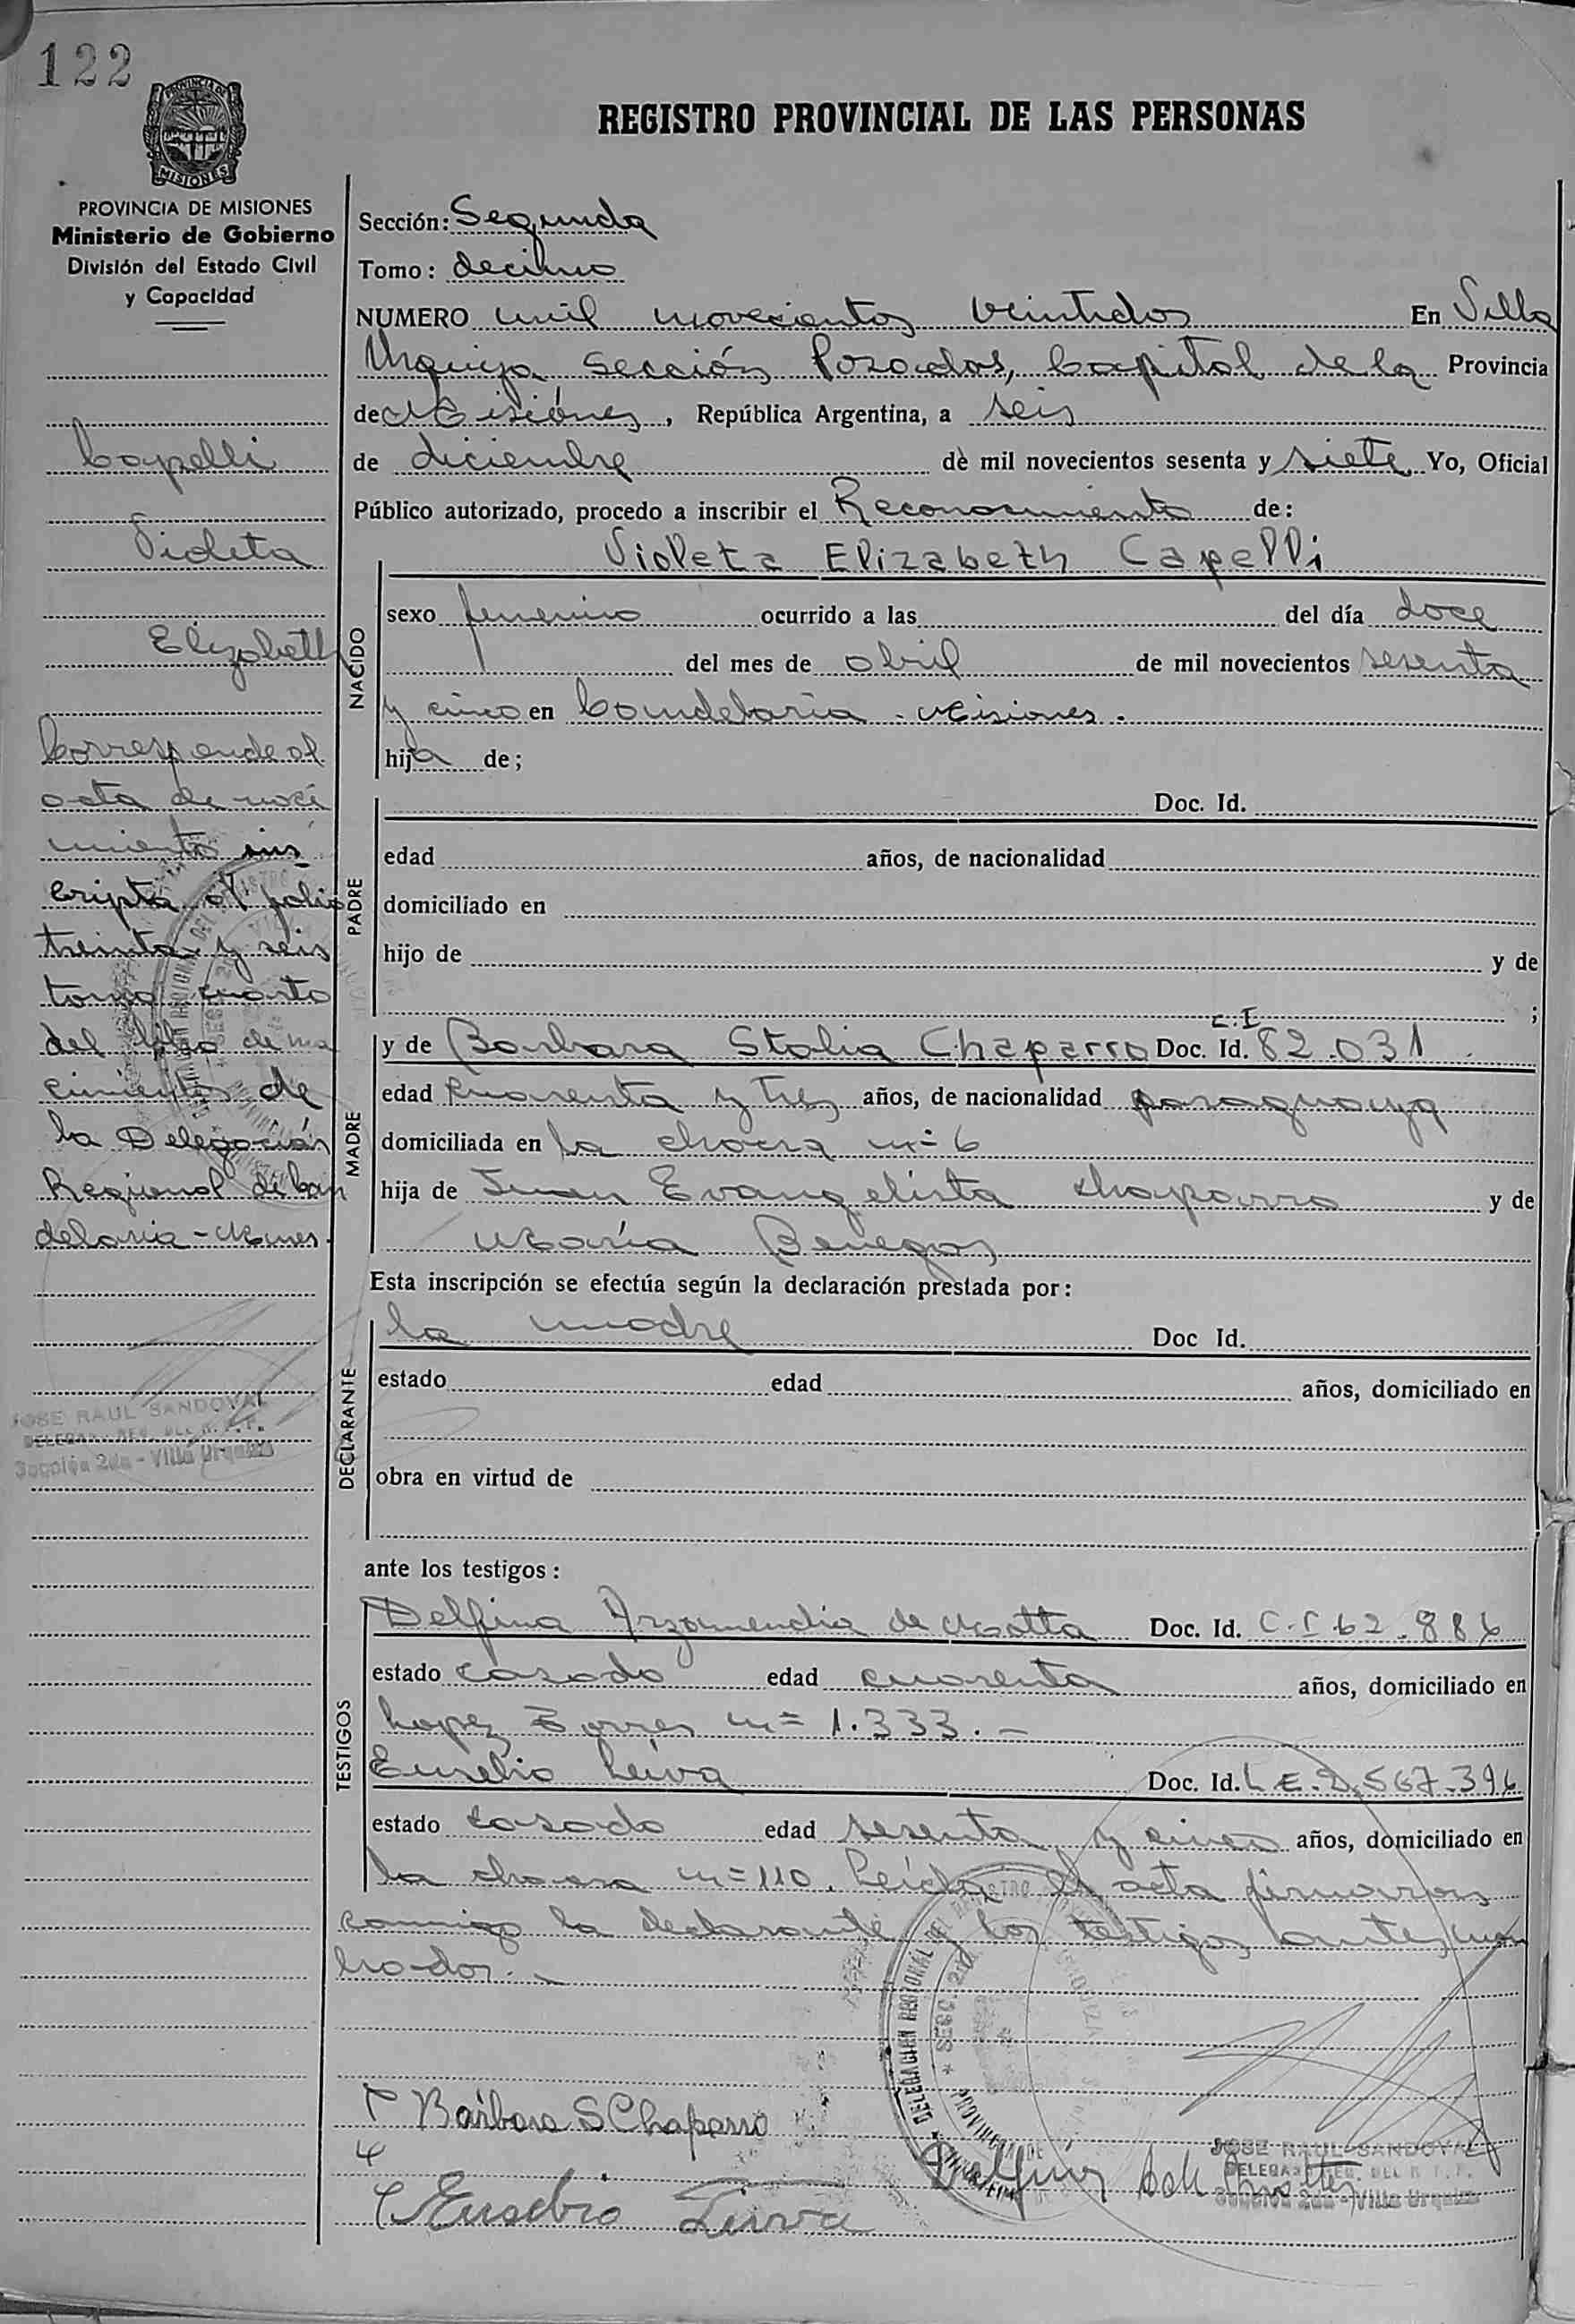 122
PROVINCIA DE MISIONES
Ministerio de Gobierno
División del Estado Civil
y Capacidad
Capelli
Violeta
Elizabeth
Corresponde al
acta de naci
miento ins
cripta al folio
treinta y seis
tomo cuarto
del libro de na
cimientos de
la Delegación
Regional de Can
delaria - Mnes.
JOSE RAUL SANDOVAL
Sección 2da - Villa Urquiza
REGISTRO PROVINCIAL DE LAS PERSONAS
Sección: Segunda
Tomo: decimo
NUMERO mil novecientos veintidos En Villa
Urquiza Sección Posadas, Capital de la Provincia
de Misiónes, República Argentina, a seis
de diciembre de mil novecientos sesenta y siete Yo, Oficial
Público autorizado, procedo a inscribir el Reconosimiento de:
Violeta Elizabeth Capelli
NACIDO
sexo femenino ocurrido a las del día doce
del mes de abril de mil novecientos sesenta
y cinco en Candelaria - Misiones.
hija de;
PADRE
Doc. Id.
edad años, de nacionalidad
domiciliado en
hijo de y de
;
MADRE
y de Barbara Stalia Chaparro Doc. Id. C.I 82.031
edad cuarenta y tres años, de nacionalidad paraguaya
domiciliada en la chacra n=6
hija de Juan Evangelista Chaparro y de
María Benegas
Esta inscripción se efectúa según la declaración prestada por:
DECLARANTE
la madre Doc Id.
estado edad años, domiciliado en
obra en virtud de
ante los testigos:
TESTIGOS
Delfina Arzamendia de Motta Doc. Id. C.I 62.886
estado casado edad cuarenta años, domiciliado en
Lopez Torres n= 1.333.-
Eusebio Leiva Doc. Id. L E. 2.567.396
estado casado edad sesenta y cinco años, domiciliado en
la chacra n=110. Leída el acta firmaron
conmigo la declarante y los testigos antes men
cionados.-
Bárbara S Chaparro
Eusebio Leiva
Delfina A de Motta
JOSE RAUL SANDOVAL
Sección 2da - Villa Urquiza